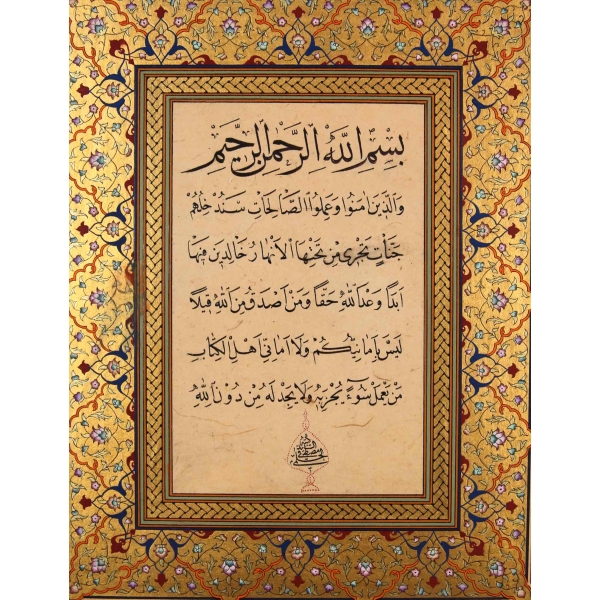 بسم الله الرحمن الرحيم
وَالَّذِينَ اٰمَنُوا وَعَمِلُوا الصَّالِحَاتِ سَنُدْخِلُهُمْ
جَنَّاتٍ تَجْرِى مِنْ تَحْتِهَا الْاَنْهَارُ خَالِدِينَ فِيهَا
اَبَدًا وَعْدَ اللهِ حَقًّا وَمَنْ اَصْدَقُ مِنَ اللهِ قِيلًا
لَيْسَ بِاَمَانِيِّكُمْ وَلَا اَمَانِىِّ اَهْلِ الْكِتَابِ
مَنْ يَعْمَلْ سُوءً يُجْزَ بِهِ وَلَا يَجِدْ لَهُ مِنْ دُونِ اللهِ